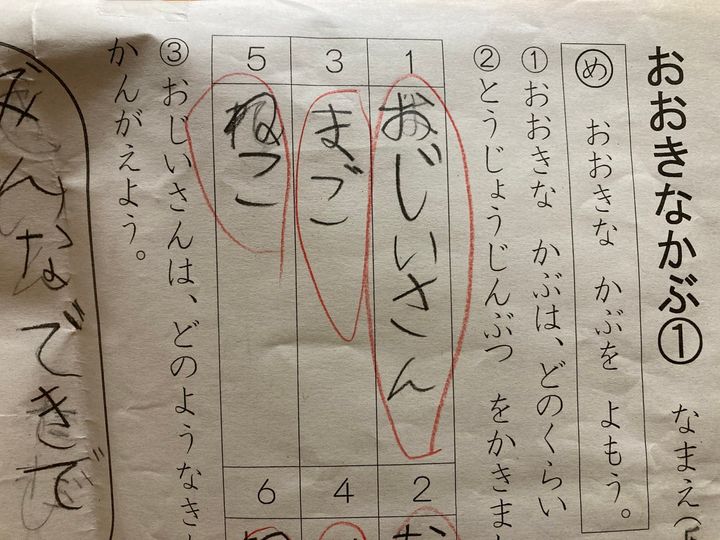 おおきなかぶ① なまえ(
め おおきな かぶを よもう。
① おおきな かぶは、どのくらい
② とうじょうじんぶつ をかきま
1 おじいさん
2
3 まご
4
5 ねこ
6
③ おじいさんは、どのようなき
かんがえよう。
みんなできで